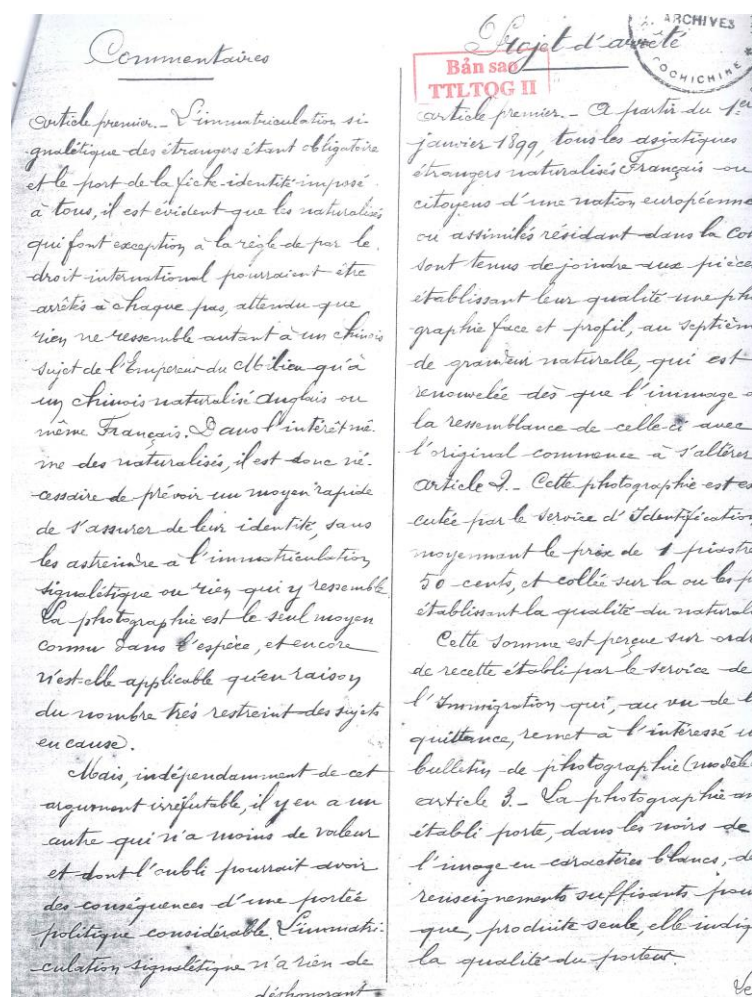 Commentaires
Article premier.- L'immatriculation si-
gnalétique des étrangers étant obligatoire
et le port de la fiche-identité imposé
à tous, il est évident que les naturalisés
qui font exception à la règle de par le
droit international pourraient être
arrêtés à chaque pas, attendu que
rien ne ressemble autant à un chinois
sujet de l'Empereur du Milieu qu'à
un chinois naturalisé Anglais ou
même Français. Dans l'intérêt mê-
me des naturalisés, il est donc né-
cessaire de prévoir un moyen rapide
de s'assurer de leur identité, sans
les astreindre à l'immatriculation
signalétique ou rien qui y ressemble.
La photographie est le seul moyen
connu dans l'espèce, et encore
n'est-elle applicable qu'en raison
du nombre très restreint des sujets
en cause.
Mais, indépendamment de cet
argument irréfutable, il y en a un
autre qui n'a moins de valeur
et dont l'oubli pourrait avoir
des conséquences d'une portée
politique considérable. L'immatri-
culation signalétique n'a rien de
déshonorant
Projet d'arrêté
ARCHIVES
COCHICHINE
Bản sao
TTLTQG II
Article premier.- A partir du 1er
janvier 1899, tous les asiatiques
étrangers naturalisés Français ou
citoyens d'une nation européenne
ou assimilés résidant dans la Co
sont tenus de joindre aux pièces
établissant leur qualité une pho
graphie face et profil, au septième
de grandeur naturelle, qui est
renouvelée dès que l'inimage
la ressemblance de celle-ci avec
l'original commence à s'altérer
Article 2.- Cette photographie est ex
cutée par le service d'Identification
moyennant le prix de 1 piastre
50 cents, et collée sur la ou les p
établissant la qualité du natural
Cette somme est perçue sur ord
de recette établi par le service de
l'Immigration qui, au vu de l
quittance, remet à l'intéressé u
bulletin de photographie (modèle
Article 3.- La photographie ain
établi porte, dans les noirs de
l'image en caractères blancs, d
renseignements suffisants pour
que, produite seule, elle indiq
la qualité du porteur.